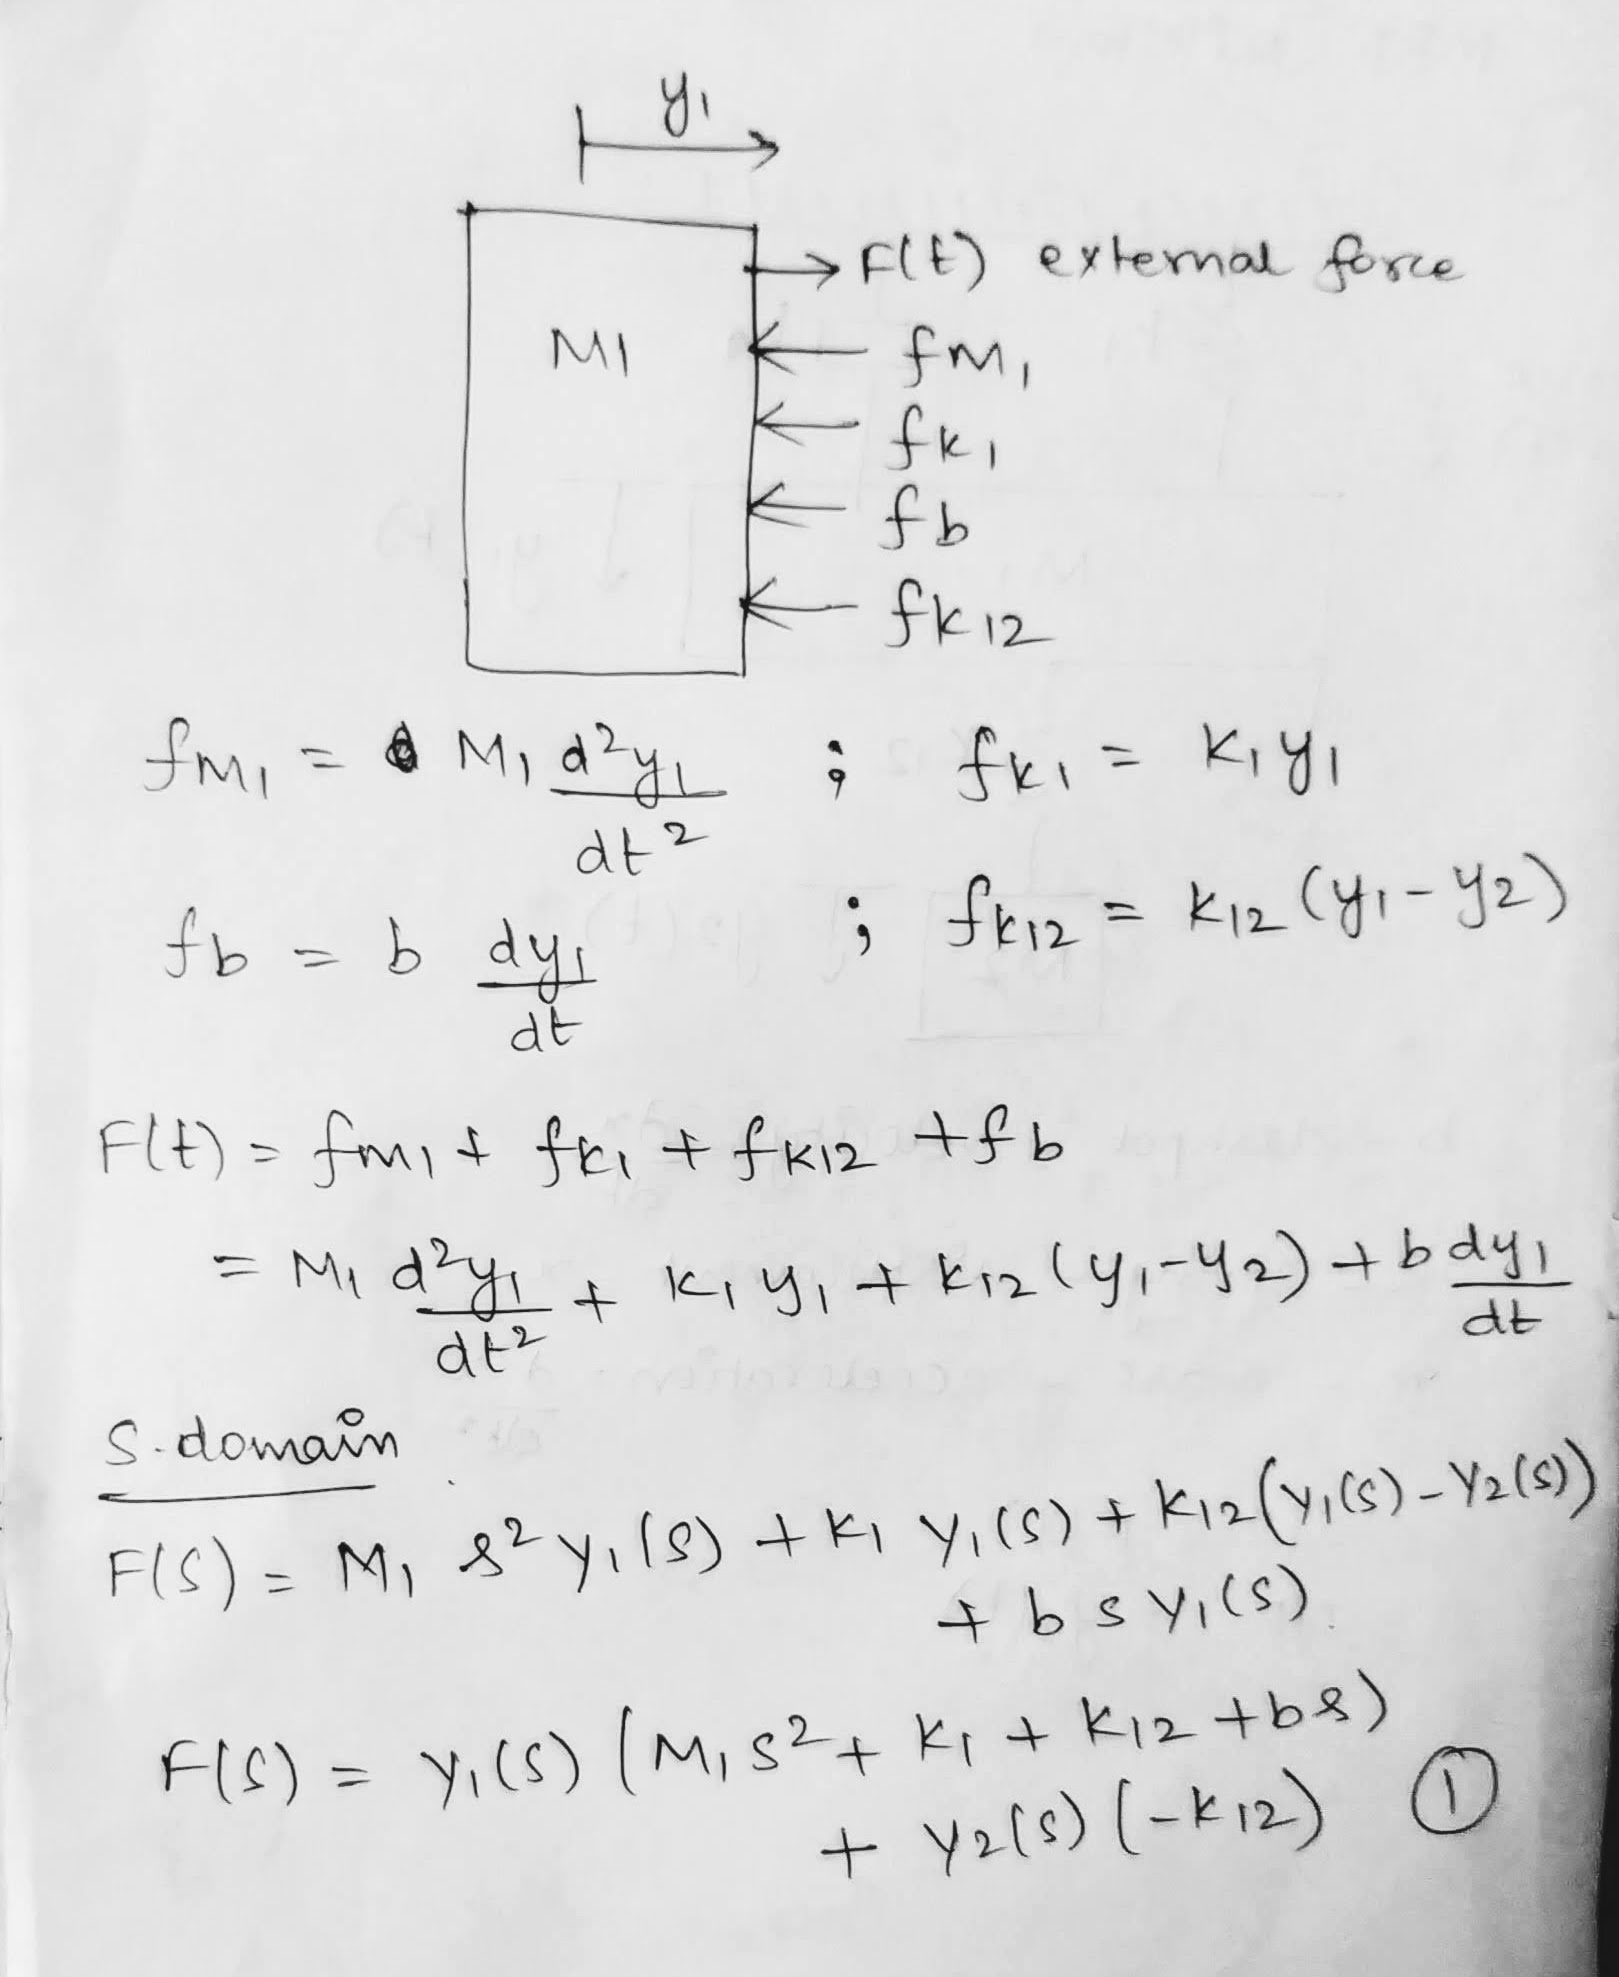 y₁
F(t) external force
M1
fM₁
fK₁
fb
fK12
fM₁ = M₁ d²y₁/dt² ; fK₁ = K₁y₁
fb = b dy₁/dt ; fK12 = K12 (y₁-y2)
F(t) = fM₁ + fK₁ + fK12 + fb
= M₁ d²y₁/dt² + K₁y₁ + K12(y₁-y2) + b dy₁/dt
S-domain
F(S) = M₁ s² Y₁(S) + K₁ Y₁(S) + K12(Y₁(S) - Y2(S))
+ b s Y₁(S).
F(S) = Y₁(S) (M₁S² + K₁ + K12 + bs)
+ Y2(S) (-K12) ①